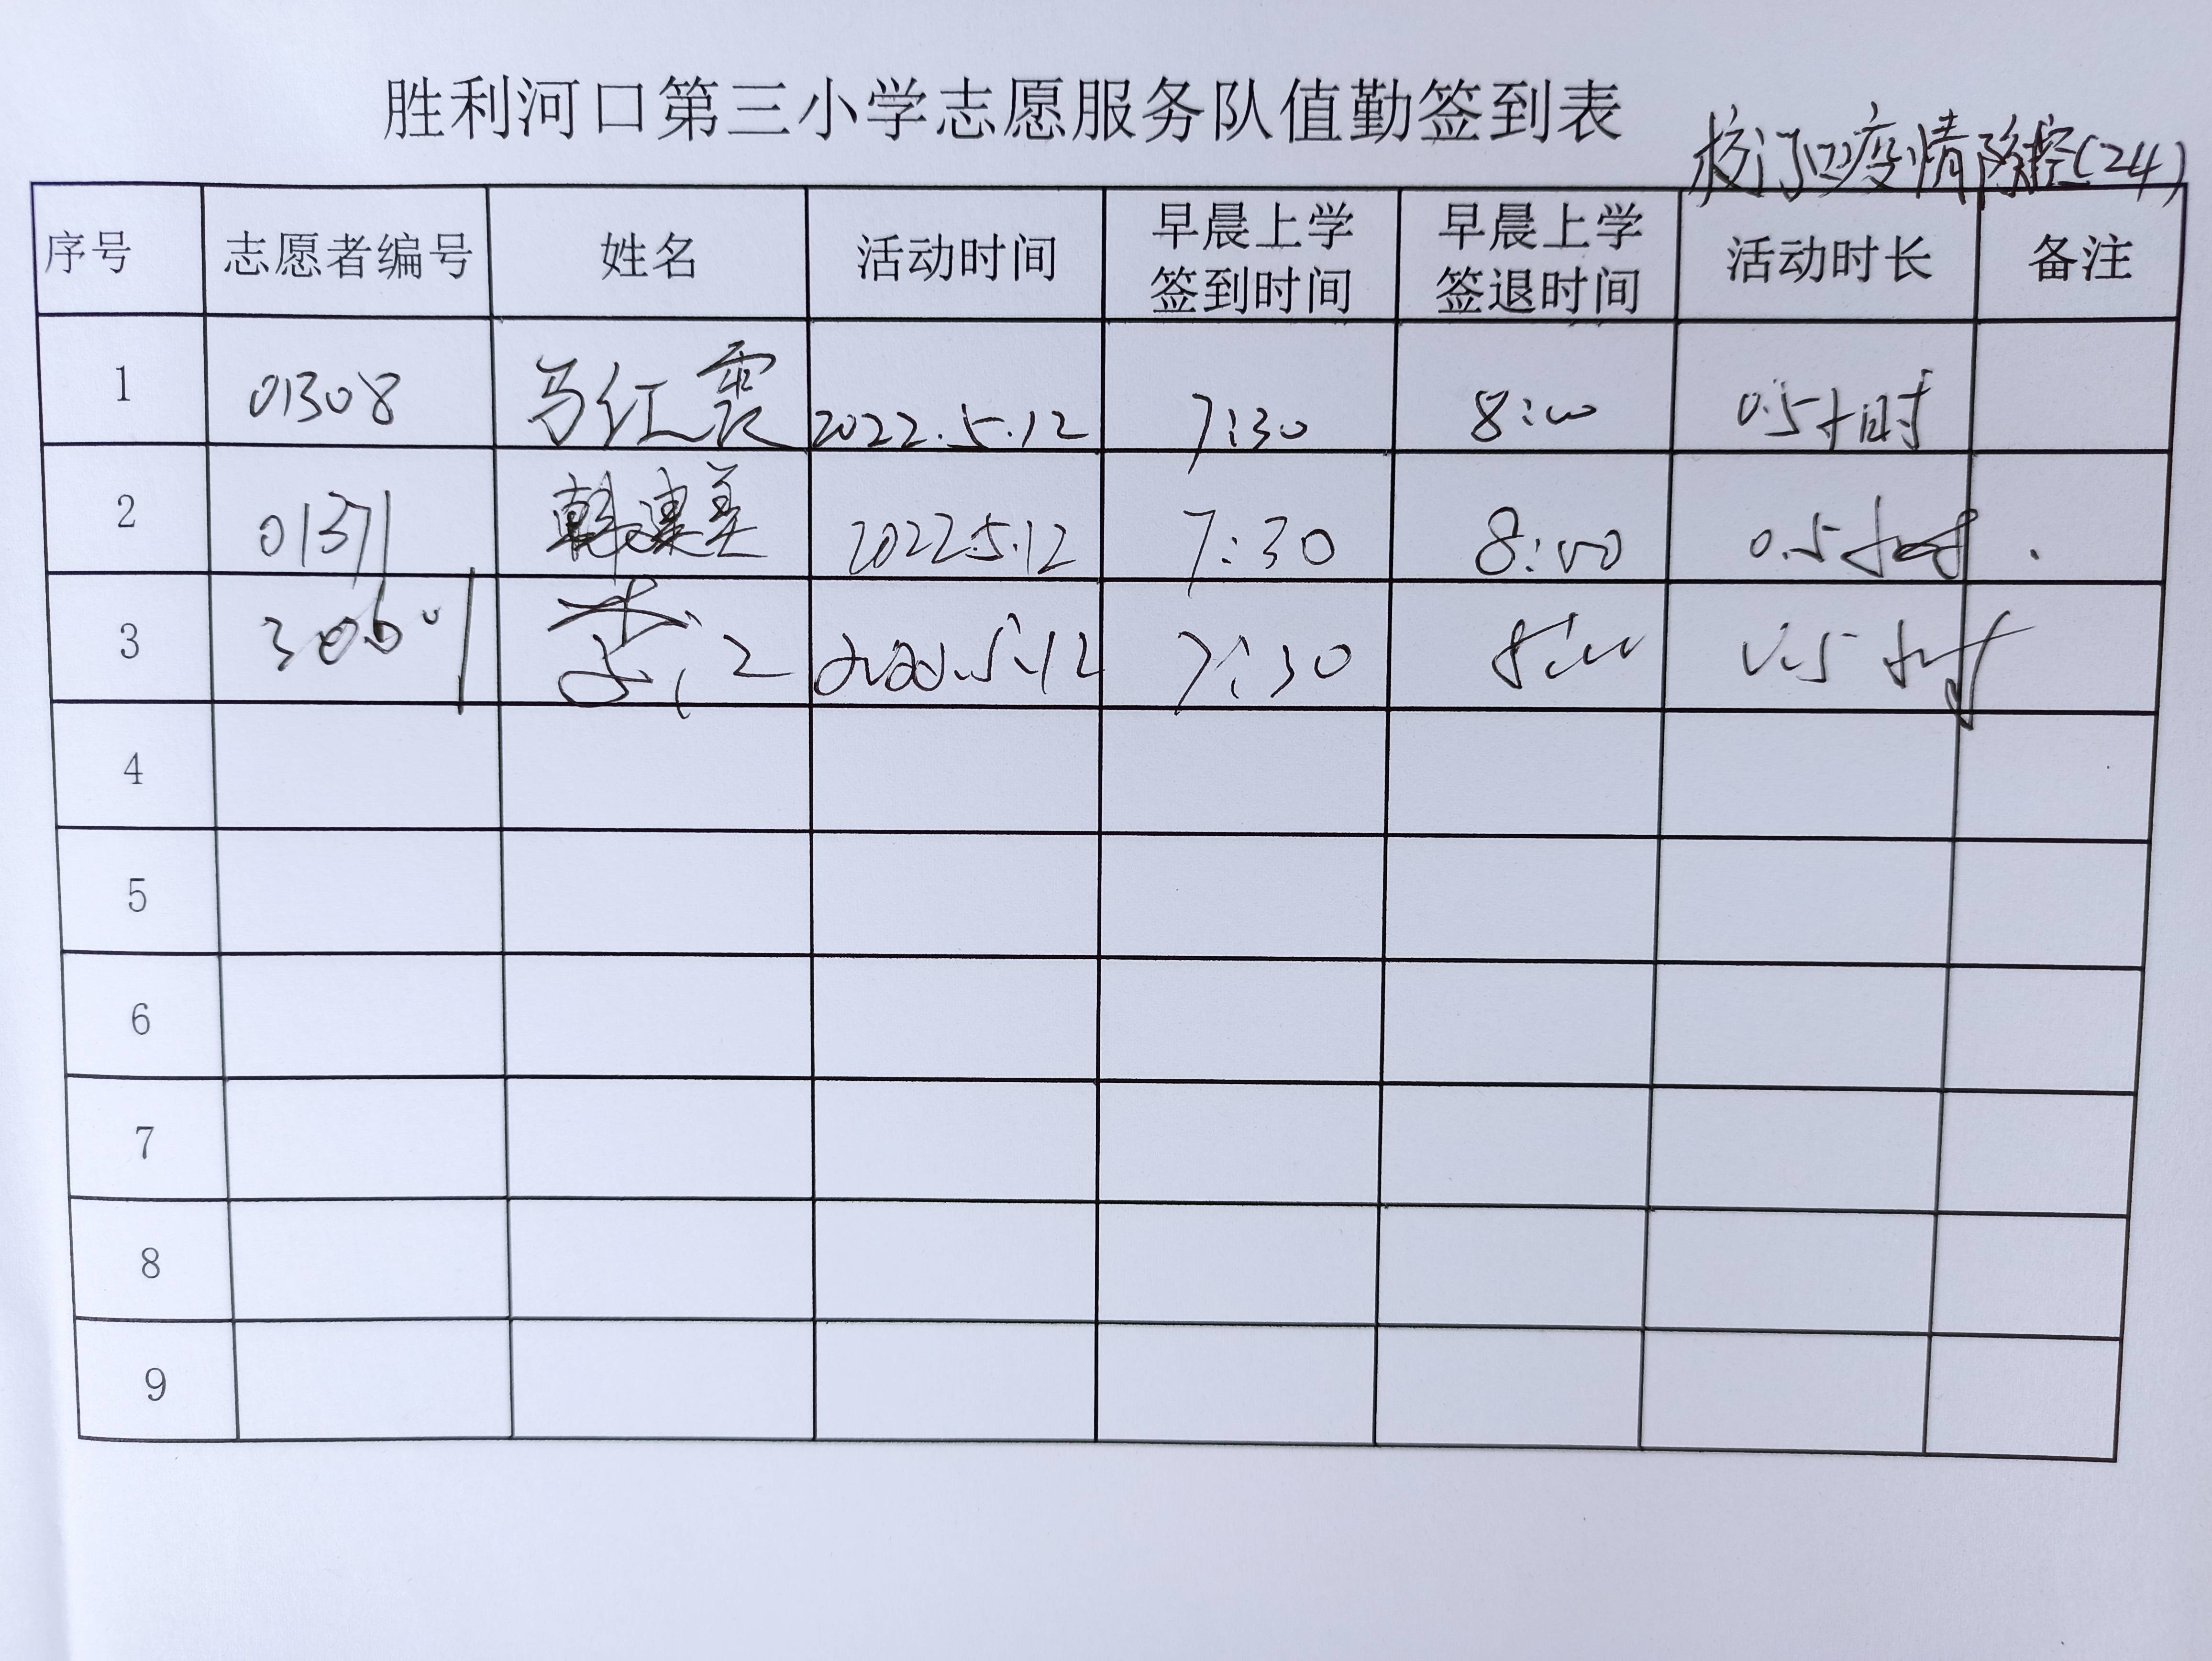 胜利河口第三小学志愿服务队值勤签到表
校门口疫情防控(24)
序号 志愿者编号 姓名 活动时间 早晨上学签到时间 早晨上学签退时间 活动时长 备注
1 01308 马红霞 2022.5.12 7:30 8:00 0.5小时
2 01371 韩建美 2022.5.12 7:30 8:00 0.5小时
3 李 5.12 7:30 8:00 0.5小时
4
5
6
7
8
9